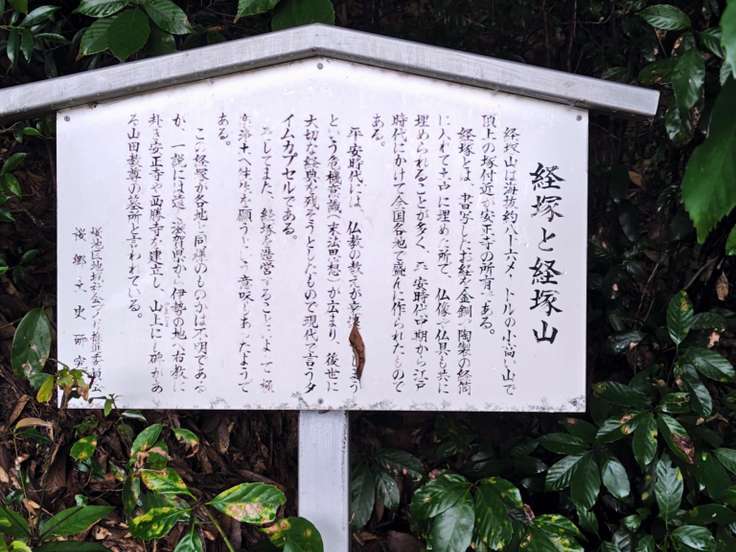 経塚と経塚山
経塚山は海抜約八十六メートルの小高い山で
頂上の塚付近が安正寺の所有である。
経塚とは、書写したお経を金銅、陶製の経筒
に入れて土中に埋めた所で、仏像や仏具も共に
埋められることが多く、平安時代中期から江戸
時代にかけて全国各地で盛んに作られたもので
ある。
平安時代には、仏教の教えが
という危機意識(末法思想)が広まり、後世に
大切な経典を残そうとしたもので現代で言うタ
イムカプセルである。
そしてまた、経塚を造営することによって極
楽浄土へ往生を願うという意味もあったようで
ある。
この経塚が各地と同様のものかは不明である
が、一説には遠く滋賀県から伊勢の地へ布教に
赴き安正寺や西勝寺を建立し、山上に
る山田教尊の墓所と言われている。
桜郷土史研究